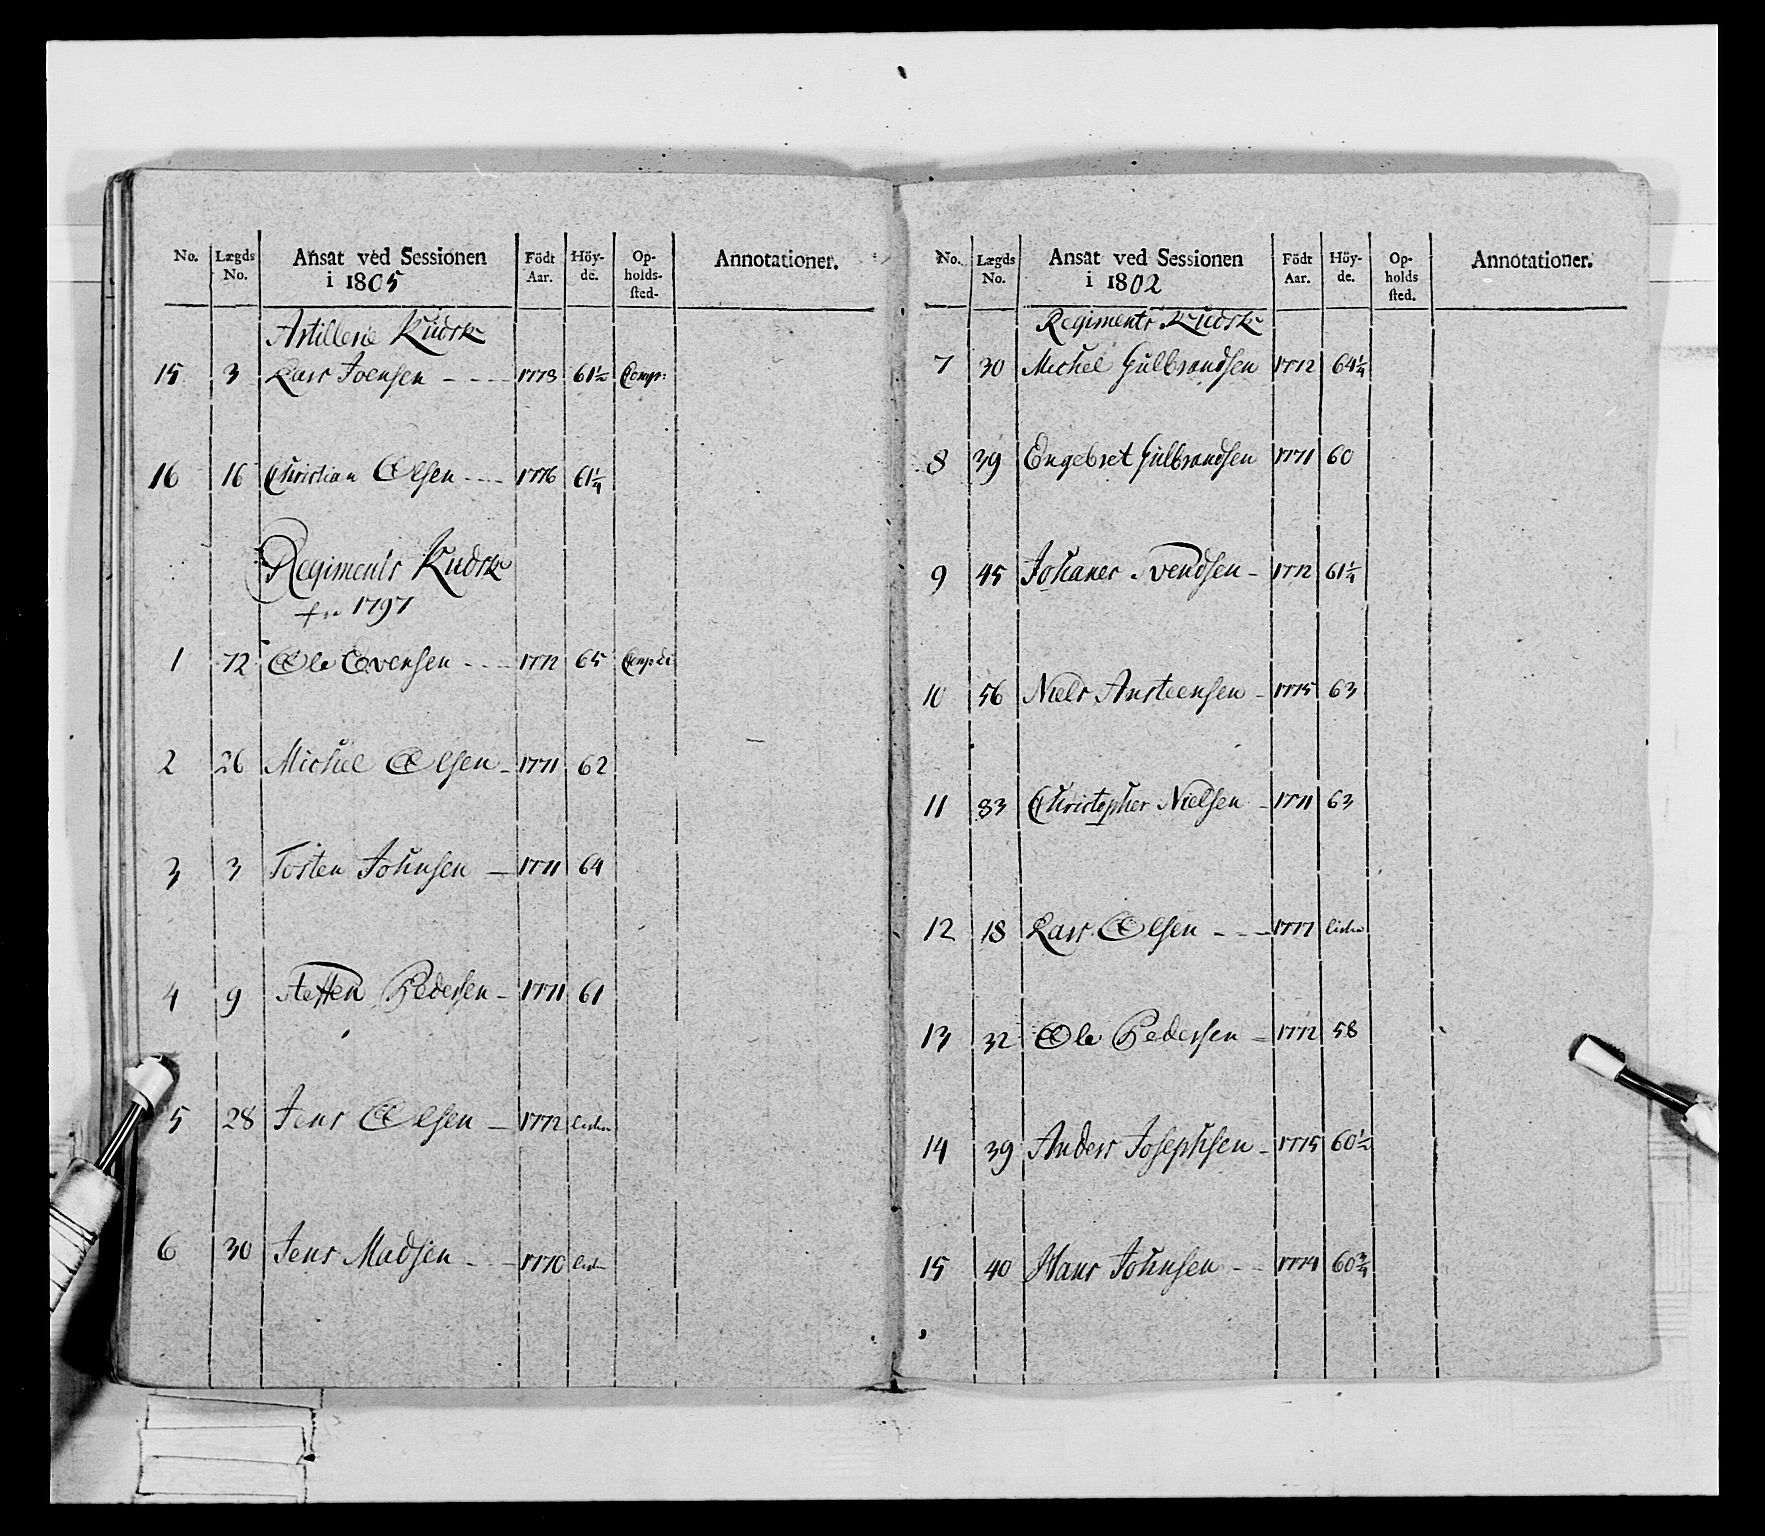 No. Lægds No. Ansat ved Sessionen i 1805 Födt Aar. Höyde. Opholdssted. Annotationer.
Artillerie Kudsk
15 3 Lars Joensen - - - 1773 61½ Comp:
16 16 Christian Olsen - - - 1776 61¼
Regiments Kudsk
fra 1797
1 72 Ole Evensen - - - 1772 65
2 26 Michel Olsen - 1771 62
3 3 Tosten Johnsen - 1771 64
4 9 Steffen Pedersen - 1771 61
5 28 Jens Olsen - 1772
6 30 Jens Madsen - - 1770
No. Lægds No. Ansat ved Sessionen i 1802 Födt Aar. Höyde. Opholds sted. Annotationer.
Regiments Kudsk
7 30 Michel Gulbrandsen 1772 64¼
8 39 Engebret Gulbrandsen 1771 60
9 45 Johanes Svendsen - 1772 61¼
10 56 Niels Ansteensen - 1775 63
11 83 Christopher Nielsen - 1771 63
12 18 Lars Olsen - - - 1777
13 32 Ole Pedersen - 1772 58
14 39 Anders Josephsen - 1775 60½
15 40 Hans Johnsen - - 1774 60¾